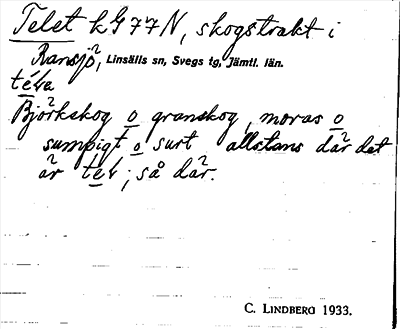 Telet kG77N, skogstrakt i
Ransjö, Linsälls sn, Svegs tg, Jämtl. län.
téɫa
Björkskog o granskog, moras o
sumpigt o surt allstans där det
är teɫ; så där.
C. LINDBERG 1933.